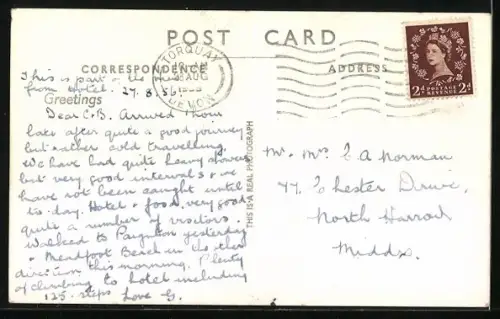 POST CARD
CORRESPONDENCE
ADDRESS
TORQUAY
AUG
DEVON
2d POSTAGE REVENUE 2d
This is part of the
from Hotel. 27.8.56
Greetings
Dear C.B. Arrived 1 hour
late after quite a good journey
but rather cold travelling.
We have had quite heavy showers
but very good intervals & we
have not been caught until
to-day. Hotel & food very good
quite a number of visitors.
Walked to Paignton yesterday
& Meadfoot Beach in the other
direction this morning. Plenty
of climbing to hotel including
125 steps Love G.
THIS IS A REAL PHOTOGRAPH
Mr. Mrs. C A Norman
77 Chester Drive,
North Harrow
Middx.